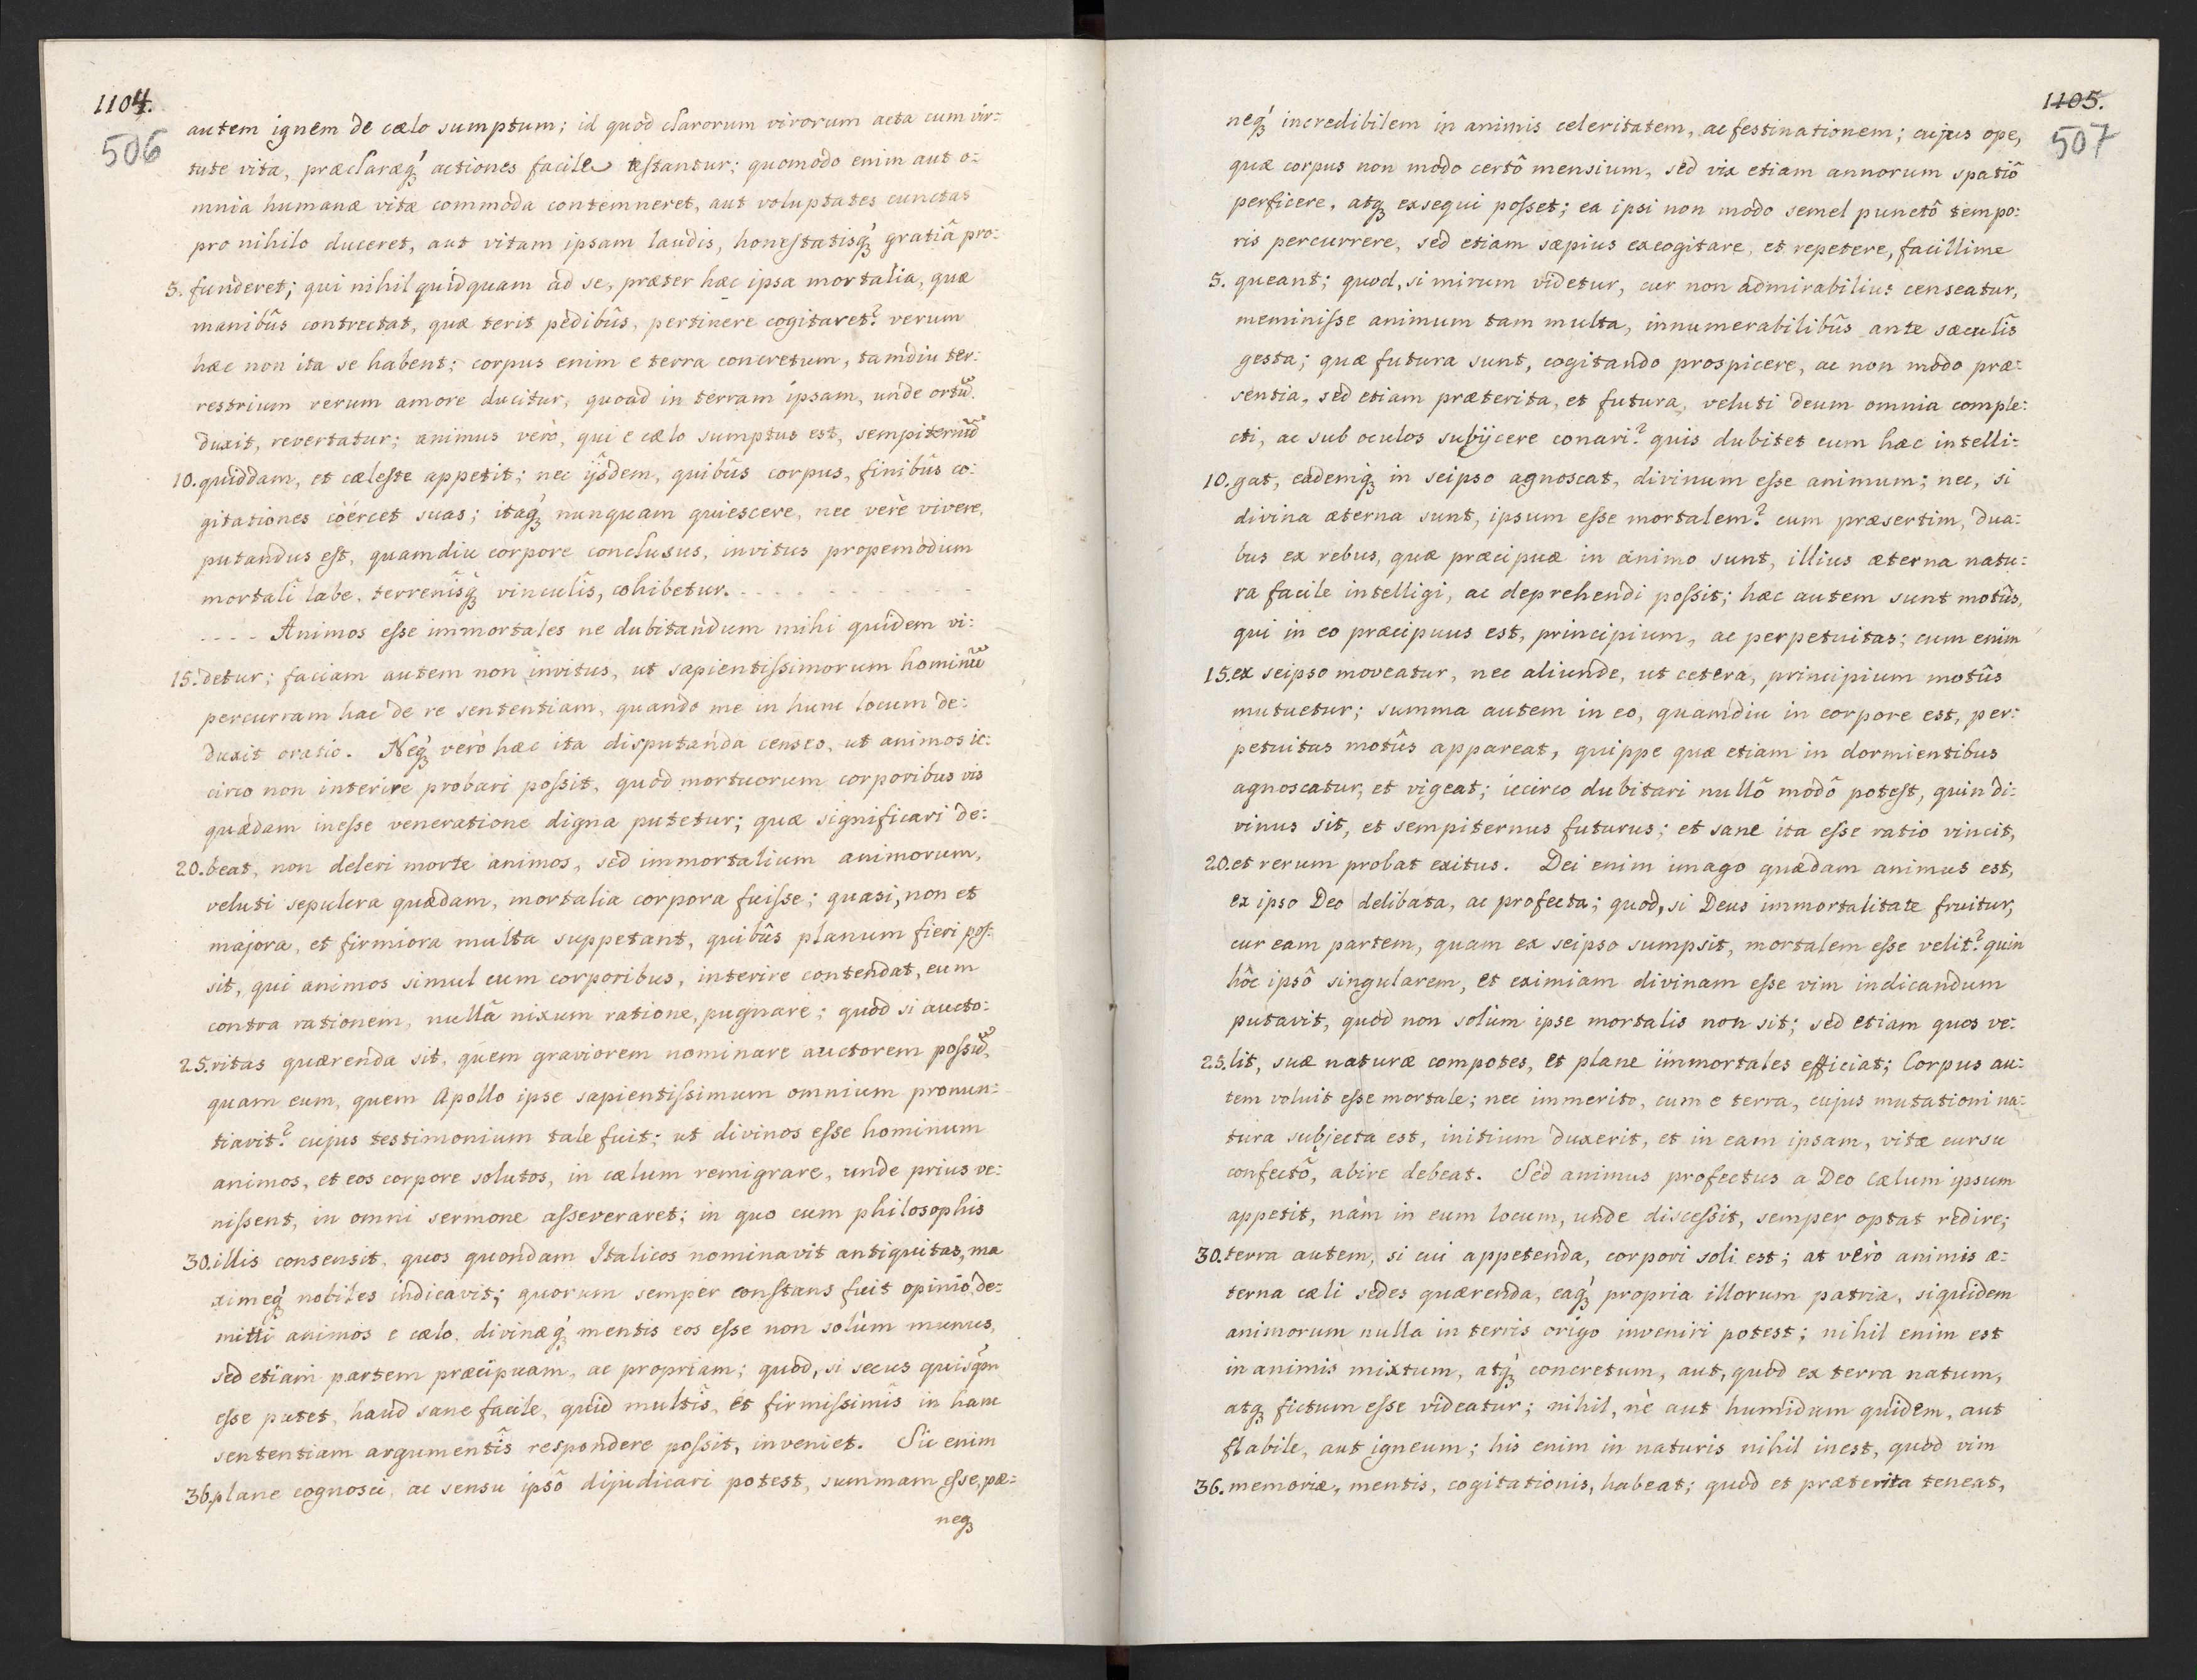 1104.
506
autem ignem de cælo sumptum; id quod clarorum virorum acta cum vir:
tute vita, præclaræq́ꝫ actiones facile testantur; quomodo enim aut o:
mnia humanæ vitæ commoda contemneret, aut voluptates cunctas
pro nihilo duceret, aut vitam ipsam laudis, honestatisq́ꝫ gratiâ pro:
5. funderet; qui nihil quidquam ad se, præter hæc ipsa mortalia, quæ
manibûs contrectat, quæ terit pedibûs, pertinere cogitaret? verum
hæc non ita se habent; corpus enim e terra concretum, tamdiu ter:
restrium rerum amore ducitur, quoad in terram ipsam, unde ortũ
duxit, revertatur; animus verò, qui e cælo sumptus est, sempiternũ
10. quiddam, et cæleste appetit; nec ijsdem, quibûs corpus, finibûs co:
gitationes coércet suas; itaq́ꝫ nunquam quiescere, nec verè vivere,
putandus est, quamdiu corpore conclusus, invitus propemodum
mortalî labe, terrenîsq́ꝫ vinculîs, cohibetur. - - - - - - - -
- - - - Animos esse immortales ne dubitandum mihi quidem vi:
15. detur; faciam autem non invitus, ut sapientissimorum hominũ
percurram hac de re sententiam, quando me in hunc locum de:
duxit oratio. Neq́ꝫ verò hæc ita disputanda censeo, ut animos ic:
circo non interire probari possit, quod mortuorum corporibus vis
quædam inesse veneratione digna putetur; quæ significari de:
20. beat, non deleri morte animos, sed immortalium animorum,
veluti sepulcra quædam, mortalia corpora fuisse; quasi, non et
majora, et firmiora multa suppetant, quibûs planum fieri pos:
sit, qui animos simul cum corporibus, interire contendat, eum
contra rationem, nullâ nixum ratione, pugnare; quod si aucto:
25. ritas quærenda sit, quem graviorem nominare auctorem possũ,
quam eum, quem Apollo ipse sapientissimum omnium pronun:
tiavit? cujus testimonium tale fuit; ut divinos esse hominum
animos, et eos corpore solutos, in cælum remigrare, unde prius ve:
nissent, in omni sermone asseveraret; in quo cum philosophis
30. illis consensit, quos quondam Italicos nominavit antiquitas, ma
ximeq́ꝫ nobiles indicavit; quorum semper constans fuit opinio, de:
mitti animos e cælo, divinæq́ꝫ mentis eos esse non solùm munus,
sed etiam partem præcipuam, ac propriam; quod, si secus quisq̃m
esse putet, haud sane facile, quid multîs, et firmissimîs in hanc
sententiam argumentîs respondere possit, inveniet. Sic enim
36. plane cognosci, ac sensu ipsô dijudicari potest, summam esse, pæ:
neqꝫ
1105.
507
neq́ꝫ incredibilem in animis celeritatem, ac festinationem; cujus ope,
quæ corpus non modo certô mensium, sed vix etiam annorum spatiô
perficere, atqꝫ exsequi posset; ea ipsi non modo semel punctô tempo:
ris percurrere, sed etiam sæpius excogitare, et repetere, facillime
5. queant; quod, si mirum videtur, cur non admirabilius censeatur,
meminisse animum tam multa, innumerabilibûs ante sæculîs
gesta; quæ futura sunt, cogitando prospicere, ac non modo præ:
sentia, sed etiam præterita, et futura, veluti deum omnia comple:
cti, ac sub oculos subijcere conari? quis dubitet cum hæc intelli:
10. gat, eademq́ꝫ in seipso agnoscat, divinum esse animum; nec, si
divina æterna sunt, ipsum esse mortalem? cum præsertim, dua:
bus ex rebus, quæ præcipuæ in animo sunt, illius æterna natu:
ra facile intelligi, ac deprehendi possit; hæc autem sunt motûs,
qui in eo præcipuus est, principium, ac perpetuitas; cum enim
15. ex seipso moveatur, nec aliunde, ut cetera, principium motûs
mutuetur; summa autem in eo, quamdiu in corpore est, per:
petuitas motûs appareat, quippe quæ etiam in dormientibus
agnoscatur, et vigeat; iccirco dubitari nullô modô potest, quin di:
vinus sit, et sempiternus futurus; et sane ita esse ratio vincit,
20. et rerum probat exitus. Dei enim imago quædam animus est,
ex ipso Deo delibata, ac profecta; quod, si Deus immortalitate fruitur,
cur eam partem, quam ex seipso sumpsit, mortalem esse velit? quin
hôc ipsô singularem, et eximiam divinam esse vim indicandum
putavit, quod non solùm ipse mortalis non sit; sed etiam quos ve:
25. lit, suæ naturæ compotes, et plane immortales efficiat; Corpus au:
tem voluit esse mortale; nec immerito, cum e terra, cujus mutationi na:
tura subjecta est, initium duxerit, et in eam ipsam, vitæ cursu
confectô, abire debeat. Sed animus profectus a Deo Cælum ipsum
appetit, nàm in eum locum, unde discessit, semper optat redire;
30. terra autem, si cui appetenda, corpori soli est; at verò animis æ:
terna cæli sedes quærenda, eaq́ꝫ propria illorum patria, siquidem
animorum nulla in terris origo inveniri potest; nihil enim est
in animis mixtum, atq́ꝫ concretum, aut, quod ex terra natum,
atqꝫ fictum esse videatur; nihil, nè aut humidum quidem, aut
flabile, aut igneum; his enim in naturis nihil inest, quod vim
36. memoriæ, mentis, cogitationis, habeat; quod et præterita teneat,